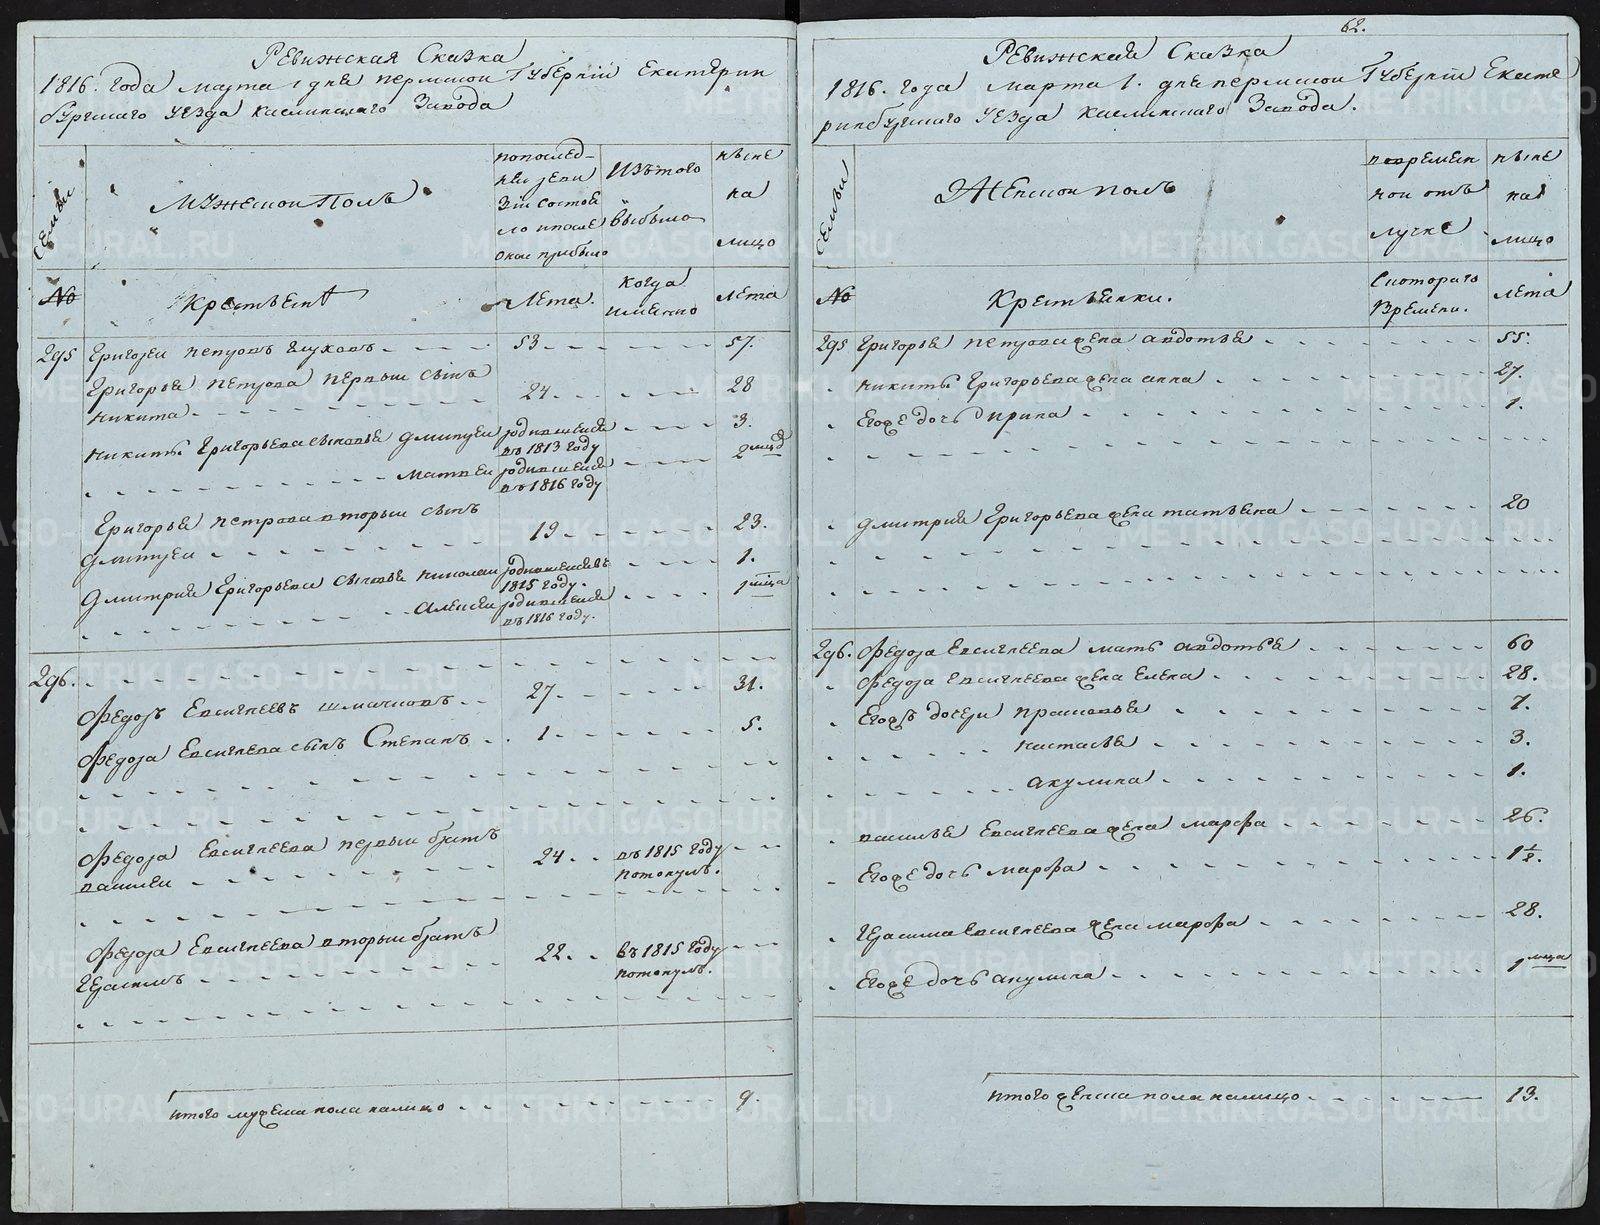 Ревижская Сказка
1816. года марта 1 дня пермской Губернии Екатерин
бургскаго Уезда каслинскаго Завода
Семьи
Мужескои Полъ
попослед-
неи реви
зіи состоя
ло ипосле
онои прибыло
Изътого
выбыло
ныне
на
лицо
№
Крестьяне
Лета.
Когда
имянно
Лета
295 Григореи петровъ глуховъ 53 57.
Григорья петрова первыи сынъ
никита 24 28
никиты Григорьева сыновья дмитреи родившеися 3.
въ 1813 году
матвеи родившеися 2 мцд
въ 1816 году
Григорья петрова вторыи сынъ
дмитреи 19 23.
дмитрия Григорьева сыновья николаи родившеися 1.
1815 году.
Алексеи родившеися 1 мца
въ 1816 году.
296.
Федоръ Евсигнеевъ шмаковъ 27 31.
Федора Евсигнева сынъ Степанъ 1 5.
Федора Евсигнеева первыи братъ
василеи 24 въ 1815 году
потонулъ.
Федора Евсигнеева вторыи братъ
Герасимъ 22. въ 1815 году
потонулъ.
итого мужеска пола налицо 9.
62.
Ревижская Сказка
1816. года марта 1. дня пермской Губернии Екате
ринбургскаго Уезда каслинскаго Завода.
Семьи
Женскои полъ
вовремен
нои отъ
лучке
ныне
на
лицо
№
Крестьянки.
Скотораго
Времени.
лета
295 Григорья петрова жена авдотья 55.
никиты Григорьева жена анна 27.
Егоже дочь ирина 1.
дмитрия Григорьева жена татьяна 20
296. Федора Евсигнеева мать авдотья 60
Федора Евсигнеева жена Елена 28.
Егожъ дочери прасковья 7.
настасья 3.
акулина 1.
василья Евсигнеева жена марфа 26.
Егоже дочь марфа 1 1/2.
Герасима Евсигнеева жена марфа 28.
Егоже дочь акулина 1 мца
итого женска пола налицо 13.
METRIKI.GASO-URAL.RU